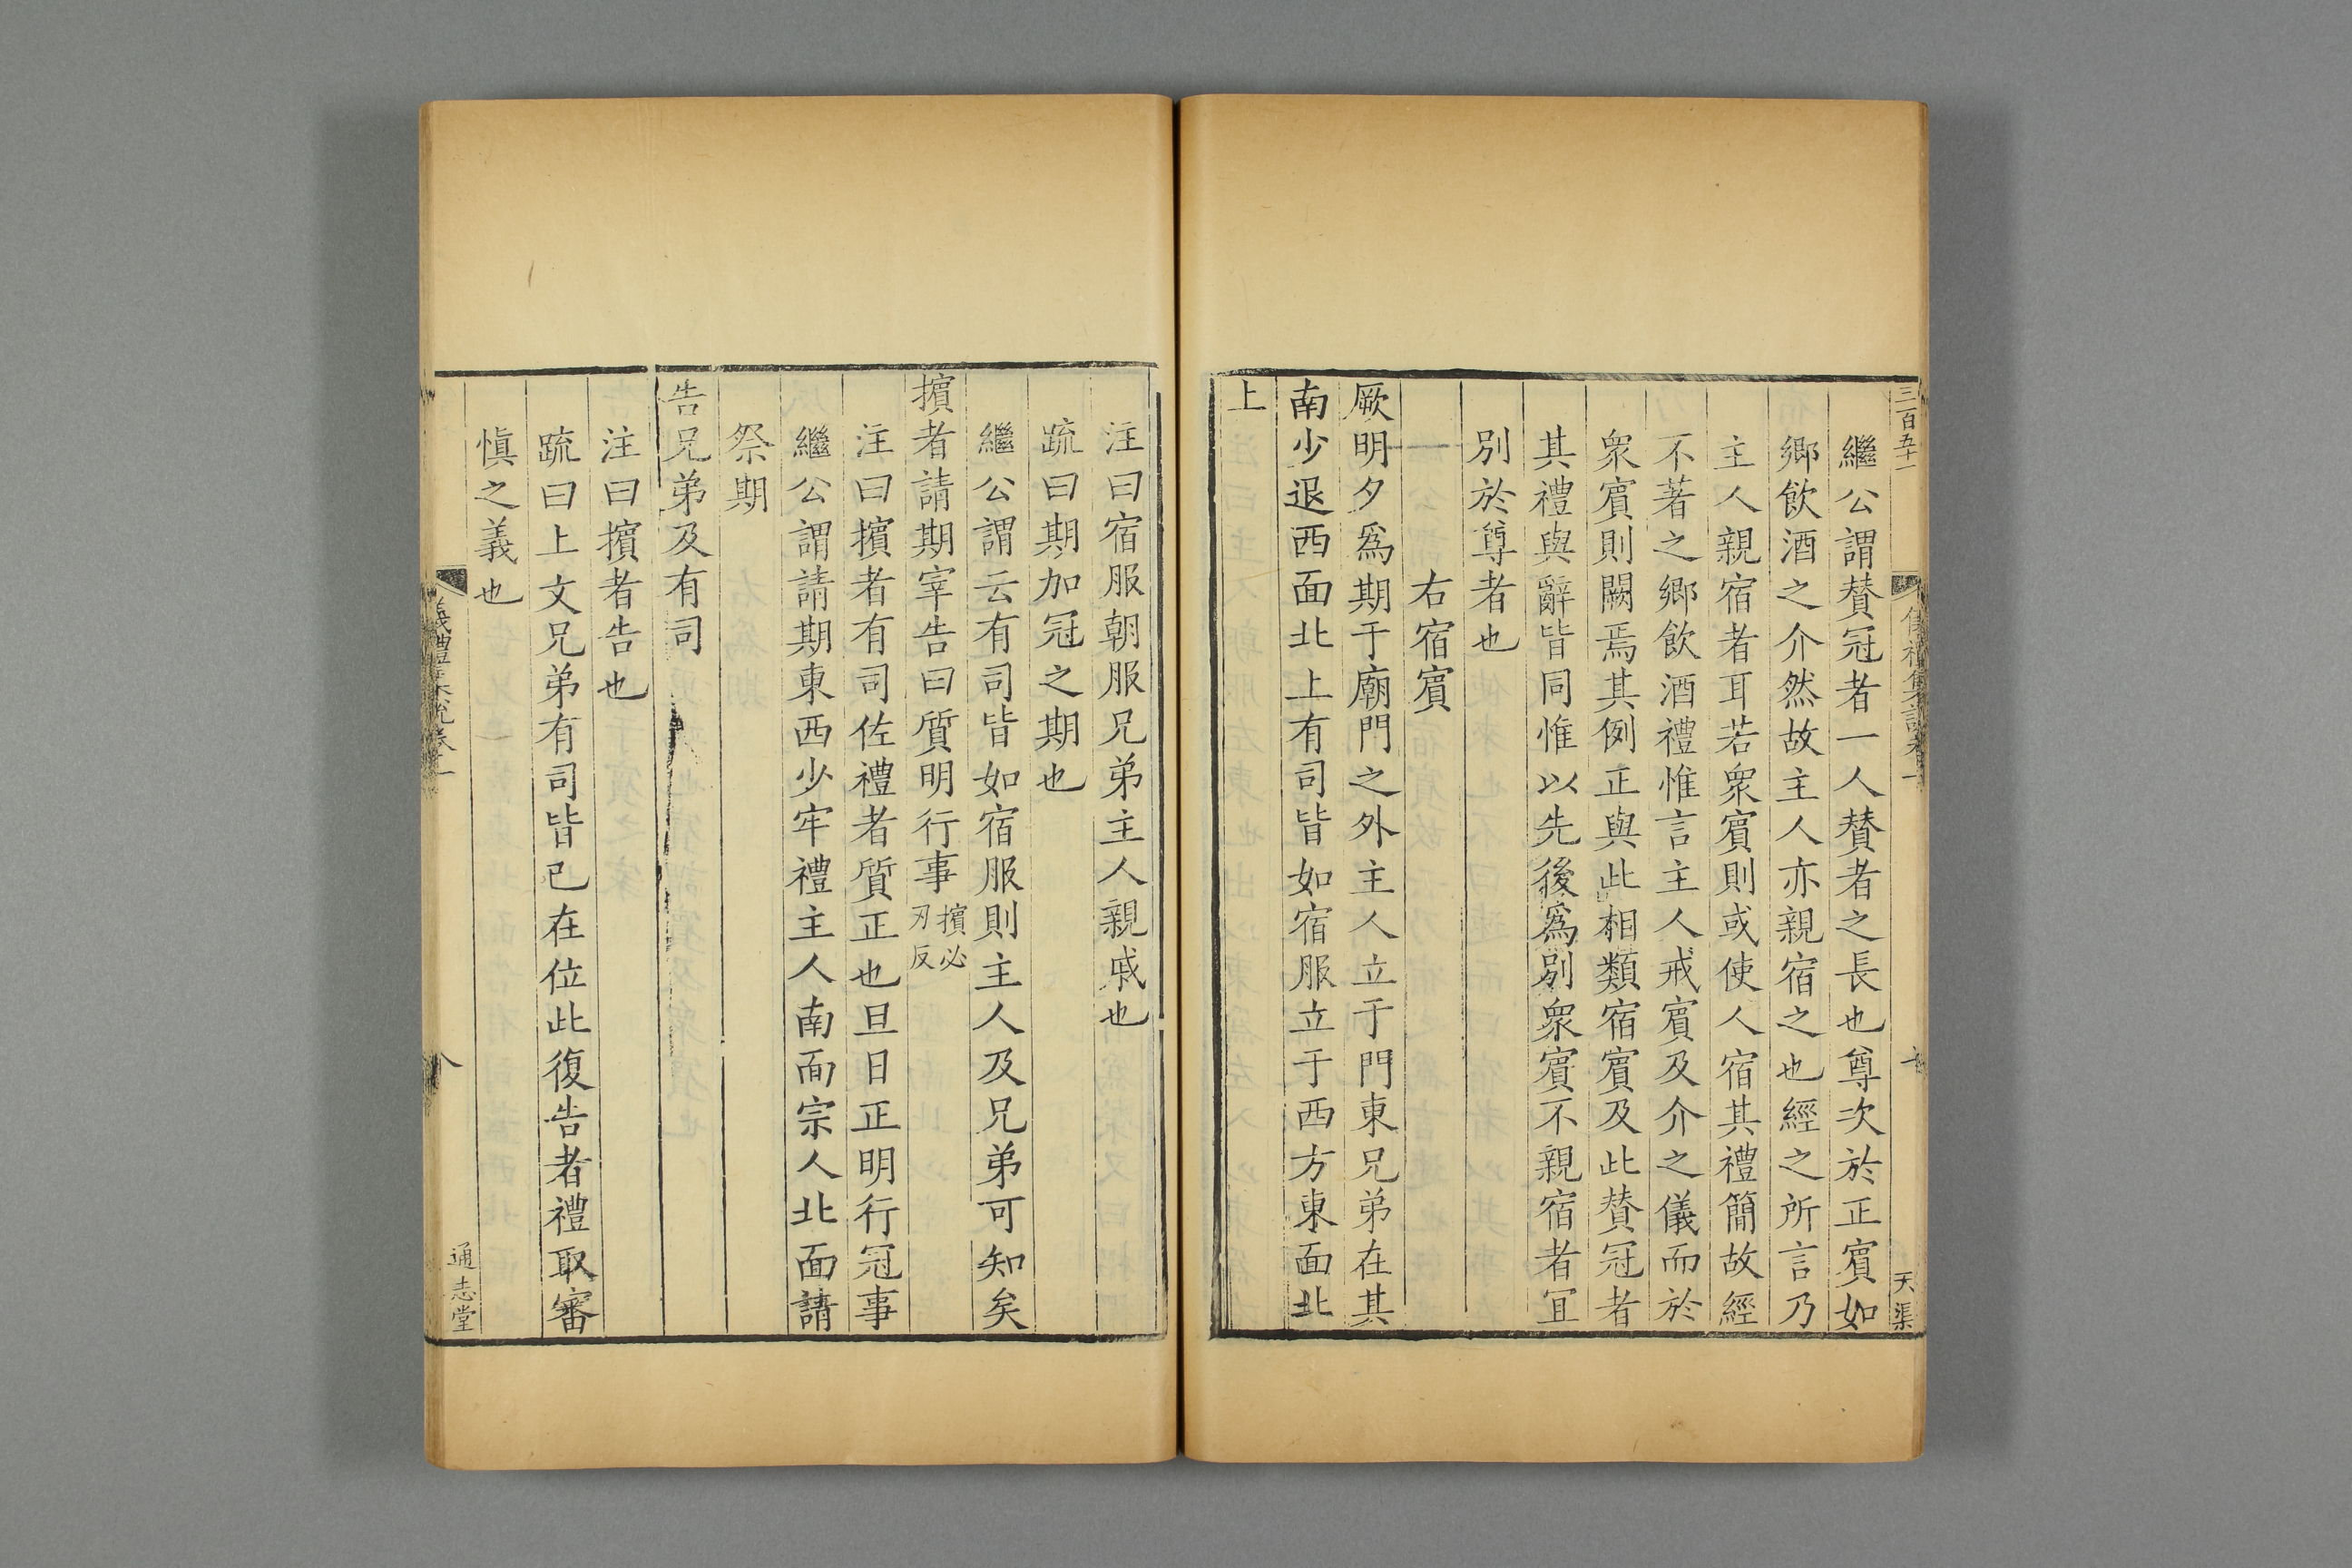 三百五十一
天渠
繼公謂賛冠者一人賛者之長也尊次於正賔如
鄉飲酒之介然故主人亦親宿之也經之所言乃
主人親宿者耳若衆賔則或使人宿其禮簡故經
不著之鄉飲酒禮惟言主人戒賔及介之儀而於
衆賔則闕焉其例正與此相類宿賔及此賛冠者
其禮與辭皆同惟以先後爲别衆賔不親宿者宜
別於尊者也
右宿賔
厥明夕爲期于廟門之外主人立于門東兄弟在其
南少退西面北上有司皆如宿服立于西方東面北
上
注曰宿服朝服兄弟主人親戚也
疏曰期加冠之期也
繼公謂云有司皆如宿服則主人及兄弟可知矣
擯者請期宰告曰質明行事擯必刃反
注曰擯者有司佐禮者質正也旦日正明行冠事
繼公謂請期東西少牢禮主人南面宗人北面請
祭期
告兄弟及有司
注曰擯者告也
疏曰上文兄弟有司皆已在位此復告者禮取審
慎之義也
八
通志堂